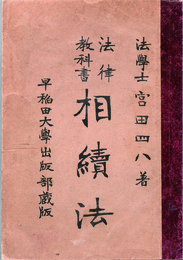 法學士 宮田四八著
法律
教科書
相續法
早稲田大學出版部蔵版